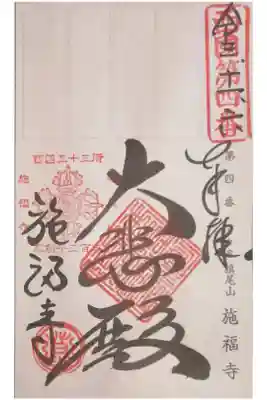 西国第四番
奉拝
第四番 槇尾山 施福寺
大悲殿
西国三十三所
施福寺
施福寺